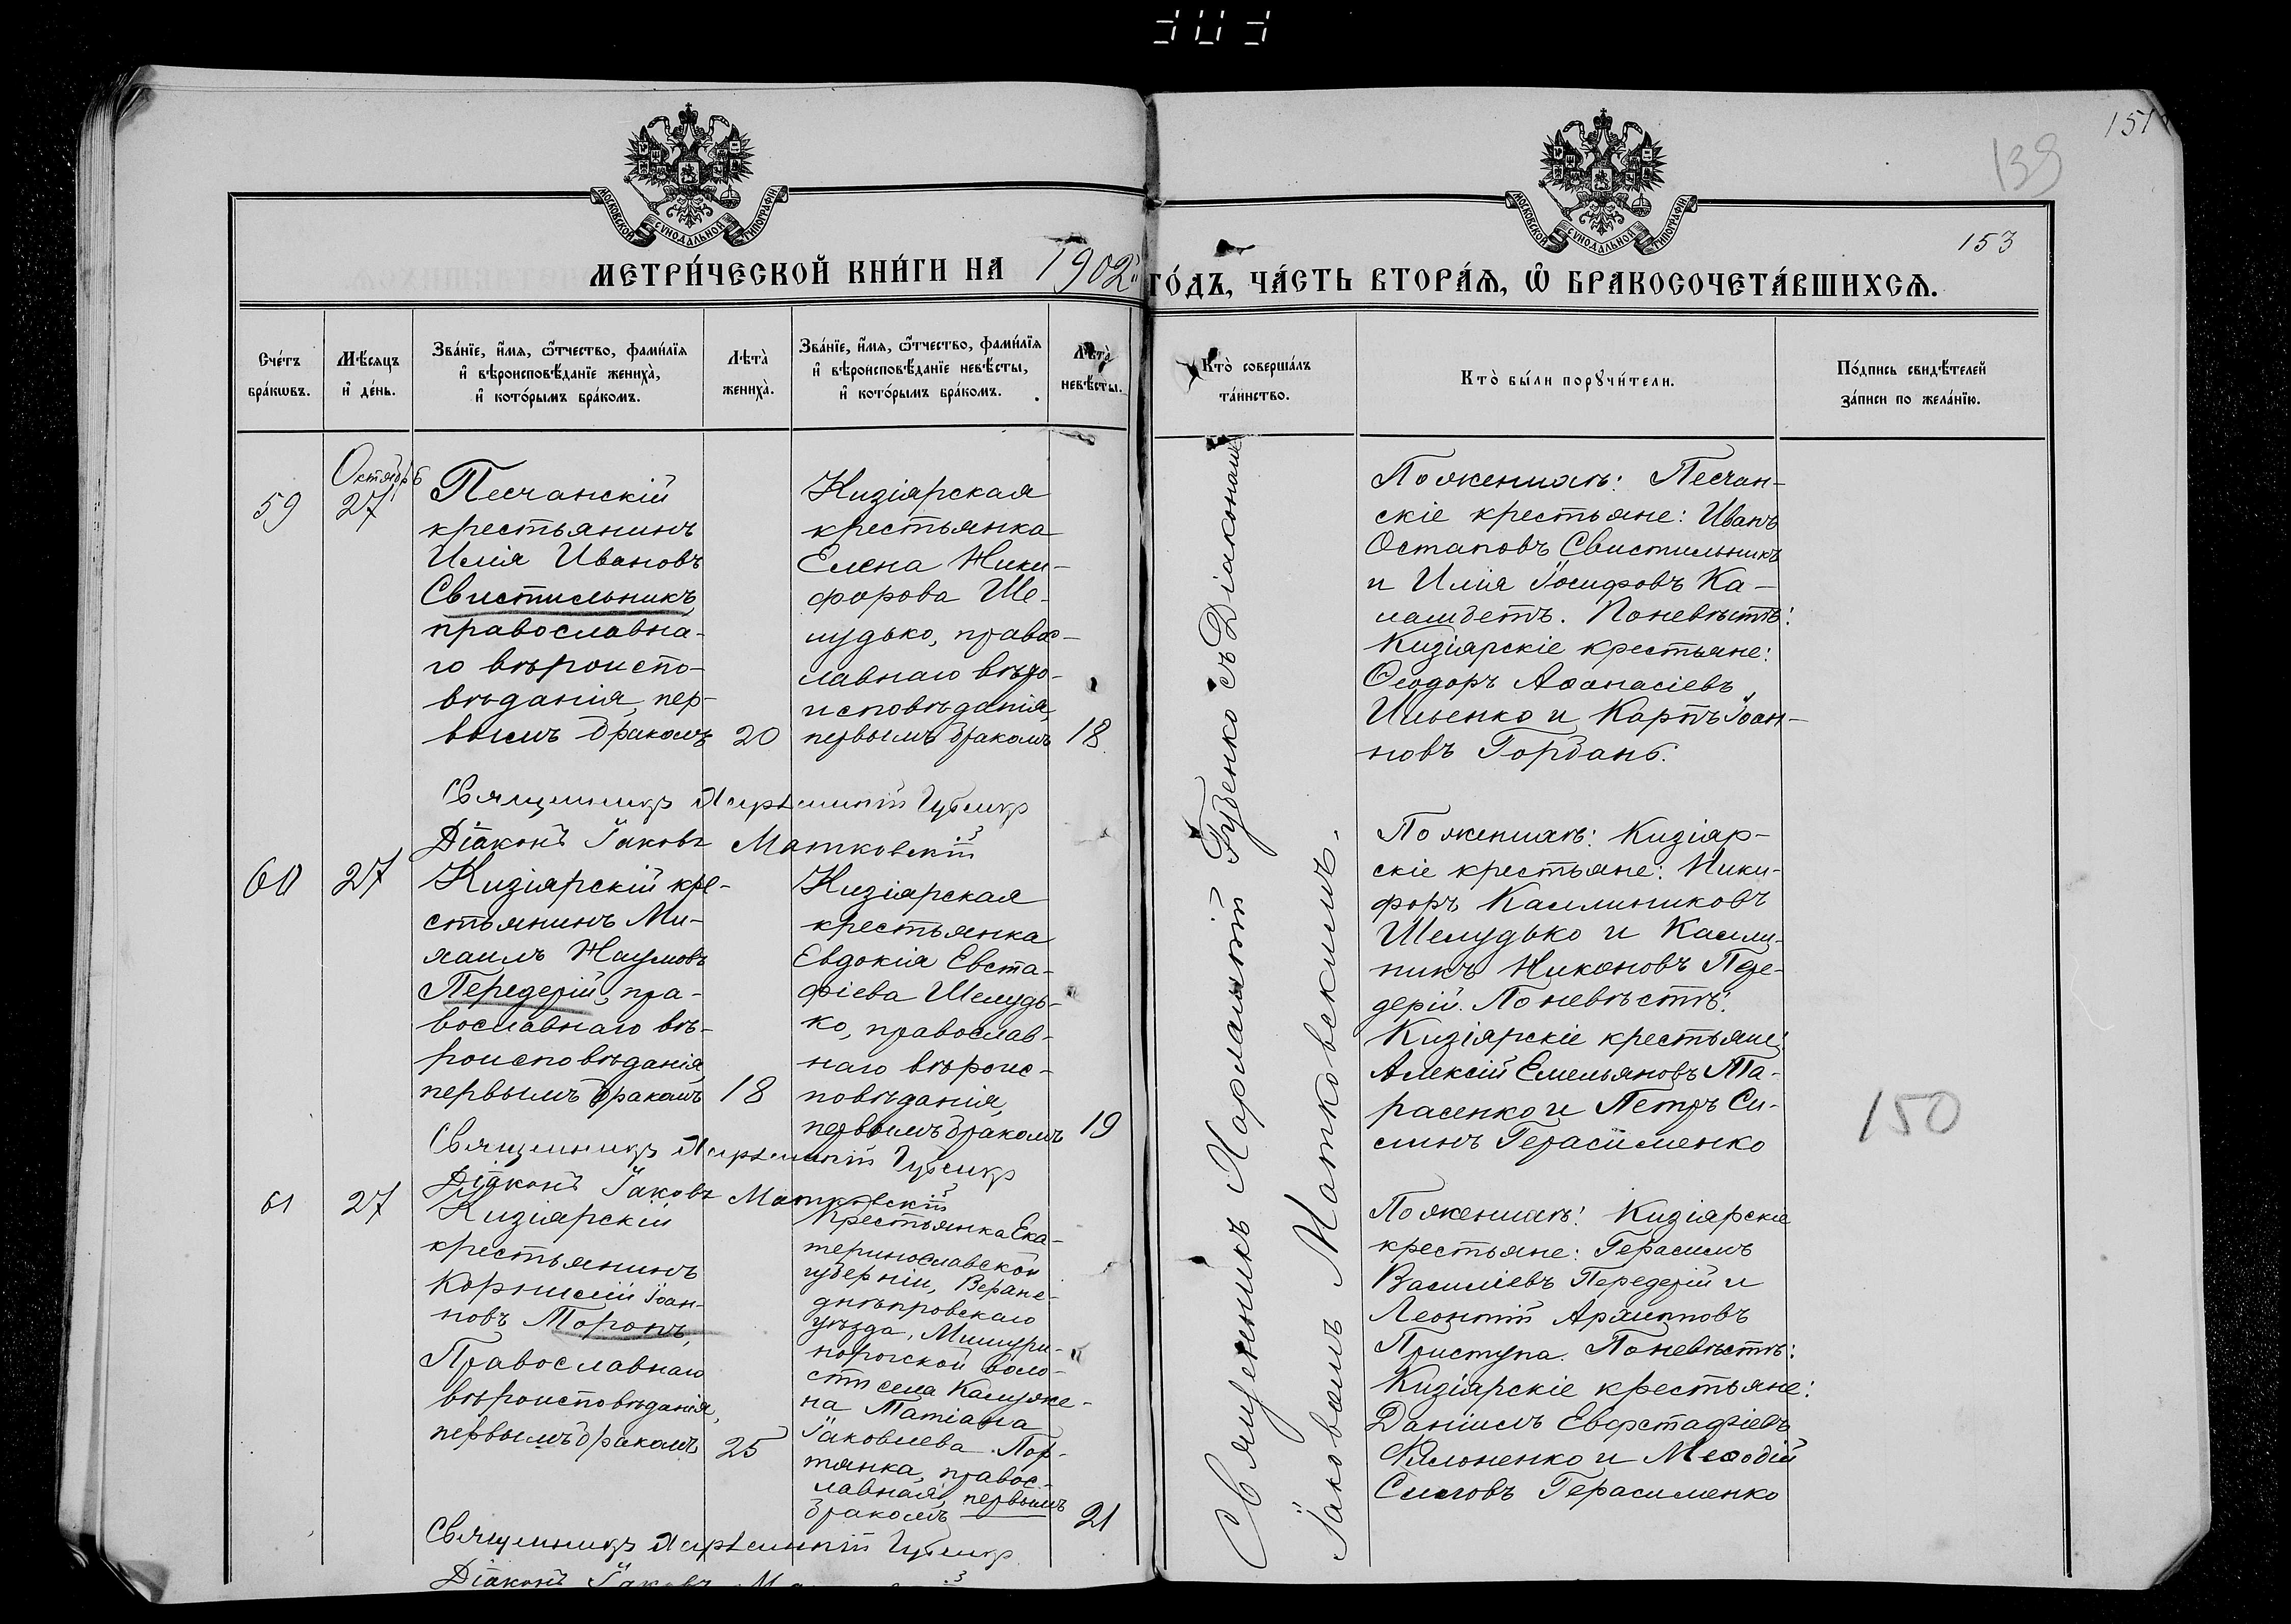 303
151
139
153
МОСКОВСКОЙ СѴНОДАЛЬНОЙ ТИПОГРАФІИ
МОСКОВСКОЙ СѴНОДАЛЬНОЙ ТИПОГРАФІИ
МЕТРИ́ЧЕСКОЙ КНИ́ГИ НА 1902 ГО́ДЪ, ЧА́СТЬ ВТОРА́Ѧ, Ѽ БРАКОСОЧЕТА́ВШИХСѦ.
Сче́тъ
бра́кωвъ.
Мѣ́сяцъ
и҆ де́нь.
Зва́нїе, и҆́мя, ѻ҆́тчество, фами́лїя
и҆ вѣроисповѣ́данїе жениха̀,
и҆ кото́рымъ бра́комъ.
Лѣта̀
жениха̀.
Зва́нїе, и҆́мя, ѻ҆́тчество, фами́лїя
и҆ вѣроисповѣ́данїе невѣ́сты,
и҆ кото́рымъ бра́комъ.
Лѣта̀
невѣ́сты.
Кто̀ соверша́лъ
та́инство.
Кто̀ бы́ли порꙋчи́тели.
По́дпись свидѣ́телей
за́писи по жела́нїю.
59
Октябрь
27
Песчанскій
крестьянинъ
Илія Ивановъ
Свистильникъ,
православна-
го вѣроиспо-
вѣданія, пер-
вымъ бракомъ
20
Кизіярская
крестьянка
Елена Ники-
форова Ше-
лудько, правос-
лавнаго вѣро-
исповѣданія,
первымъ бракомъ
18.
Священникъ Харлампій Губенко
Діаконъ Іаковъ Матковскій
По женихѣ: Песчан-
скіе крестьяне: Иванъ
Остаповъ Свистильникъ
и Илія Іосифовъ Ка-
. По невѣстѣ:
Кизіярскіе крестьяне:
Ѳеодоръ Аѳанасіевъ
Ильенко и Карпъ Іоан-
новъ Горбань.
60
27
Кизіярскій кре-
стьянинъ Ми-
хаилъ Наумовъ
Передерій, пра-
вославнаго вѣ-
роисповѣданія,
первымъ бракомъ
18
Кизіярская
крестьянка
Евдокія Евста-
фіева Шелудь-
ко, православ-
наго вѣроис-
повѣданія,
первымъ бракомъ
19
Священникъ Харлампій Губенко
Діаконъ Іаковъ Матковскій
По женихѣ: Кизіяр-
скіе крестьяне: Ники-
форъ Каллиниковъ
Шелудько и Калли-
никъ Никоновъ Пере-
дерій. По невѣстѣ:
Кизіярскіе крестьяне:
Алексій Емельяновъ Та-
расенко и Петръ Си-
линъ Герасименко
150
61
27
Кизіярскій
крестьянинъ
Корнилій Іоан-
новъ Торопъ,
Православнаго
вѣроисповѣданія,
первымъ бракомъ
25
Крестьянка Ека-
теринославской
губерніи, Верхне-
днѣпровскаго
уѣзда, Мишури-
норогской воло-
сти села Калуже-
на Татіана
Іаковлева Пор-
тянка, правос-
лавная, первымъ
бракомъ
21
Священникъ Харлампій Губенко
Діаконъ Іаковъ
По женихѣ: Кизіярскіе
крестьяне: Герасимъ
Василіевъ Передерій и
Леонтій Архипповъ
Приступа. По невѣстѣ:
Кизіярскіе крестьяне:
Даніилъ Евфстафіевъ
Филоненко и Меѳодій
Силовъ Герасименко
Священникъ Харлампій Губенко съ Діакономъ
Іаковомъ Матковскимъ.